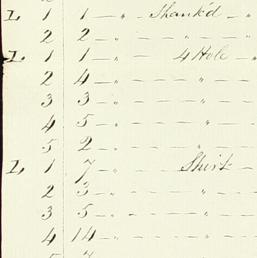 L 1 1 — " — Shank'd — "
2 2 — " — " — "
L 1 1 — " — 4 Hole — "
2 4 — " — " —
3 3 — " — " —
4 5 — " — " —
5 2 — " — " —
L 1 7 — " — Shirt —
2 3 — " — " —
3 5 — " — " —
4 14 — " — " —